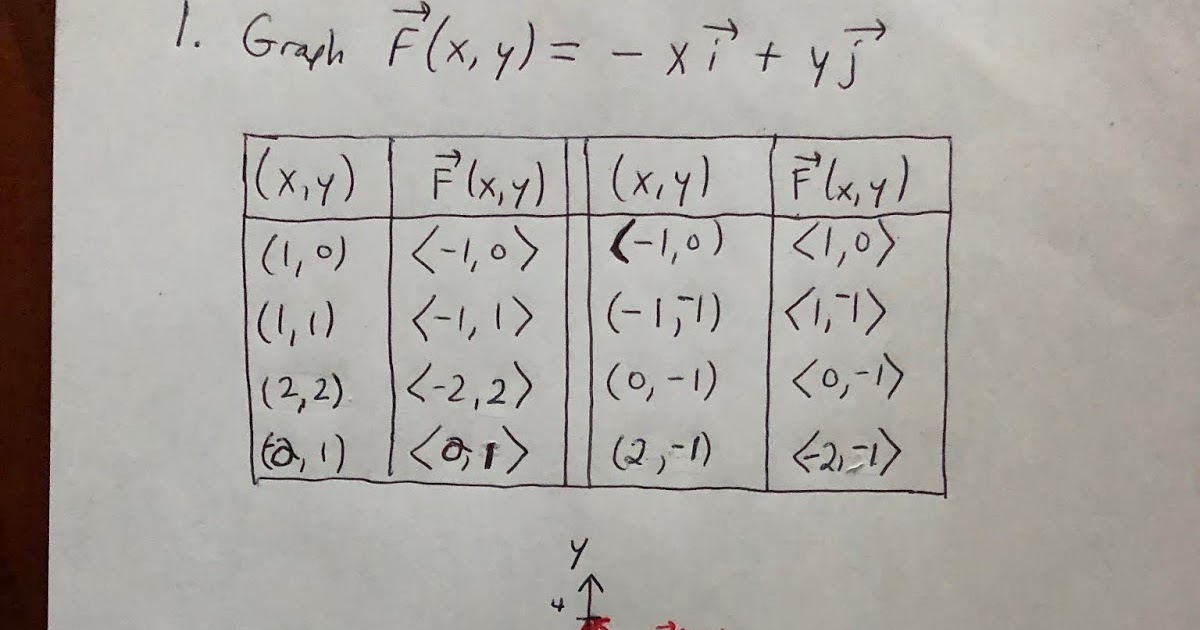 1. Graph F⃗(x,y) = -x i⃗ + y j⃗
(x,y) F⃗(x,y) (x,y) F⃗(x,y)
(1,0) <-1,0> (-1,0) <1,0>
(1,1) <-1,1> (-1,-1) <1,-1>
(2,2) <-2,2> (0,-1) <0,-1>
(0,1) <0,1> (2,-1) <-2,-1>
y
4